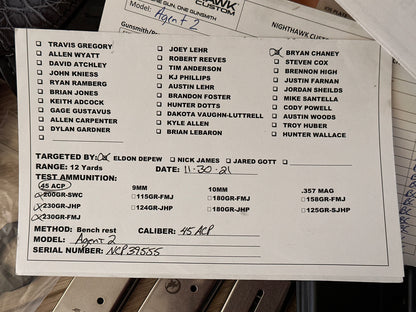 Model: Agent 2
ONE GUN, ONE GUNSMITH
CUSTOM
NIGHTHAWK CUSTOM
TRAVIS GREGORY
ALLEN WYATT
DAVID ATCHLEY
JOHN KNIESS
RYAN RAMBERG
BRIAN JONES
KEITH ADCOCK
GAGE GUSTAVUS
ALLEN CARPENTER
DYLAN GARDNER
JOEY LEHR
ROBERT REEVES
TIM ANDERSON
KJ PHILLIPS
AUSTIN LEHR
BRANDON FOSTER
HUNTER DOTTS
DAKOTA VAUGHN-LUTTRELL
KYLE ALLEN
BRIAN LEBARON
BRYAN CHANEY
STEVEN COX
BRENNON HIGH
JUSTIN FARNAN
JORDAN SHEILDS
MIKE SANTELLA
CODY POWELL
AUSTIN WOODS
TROY HUBER
HUNTER WALLACE
TARGETED BY: ELDON DEPEW NICK JAMES JARED GOTT
RANGE: 12 Yards DATE: 11-30-21
TEST AMMUNITION:
45 ACP 9MM 10MM .357 MAG
200GR-SWC 115GR-FMJ 180GR-FMJ 158GR-FMJ
230GR-JHP 124GR-JHP 180GR-JHP 125GR-SJHP
230GR-FMJ
METHOD: Bench rest CALIBER: 45 ACP
MODEL: Agent 2
SERIAL NUMBER: NCP39555